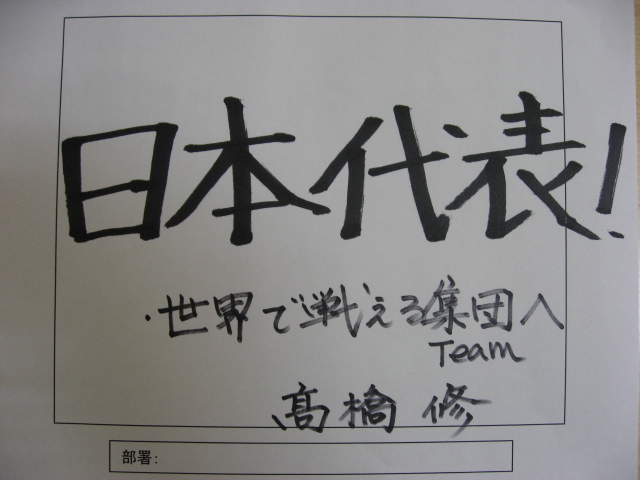 日本代表!
・世界で戦える集団へ
Team
髙橋 修
部署: